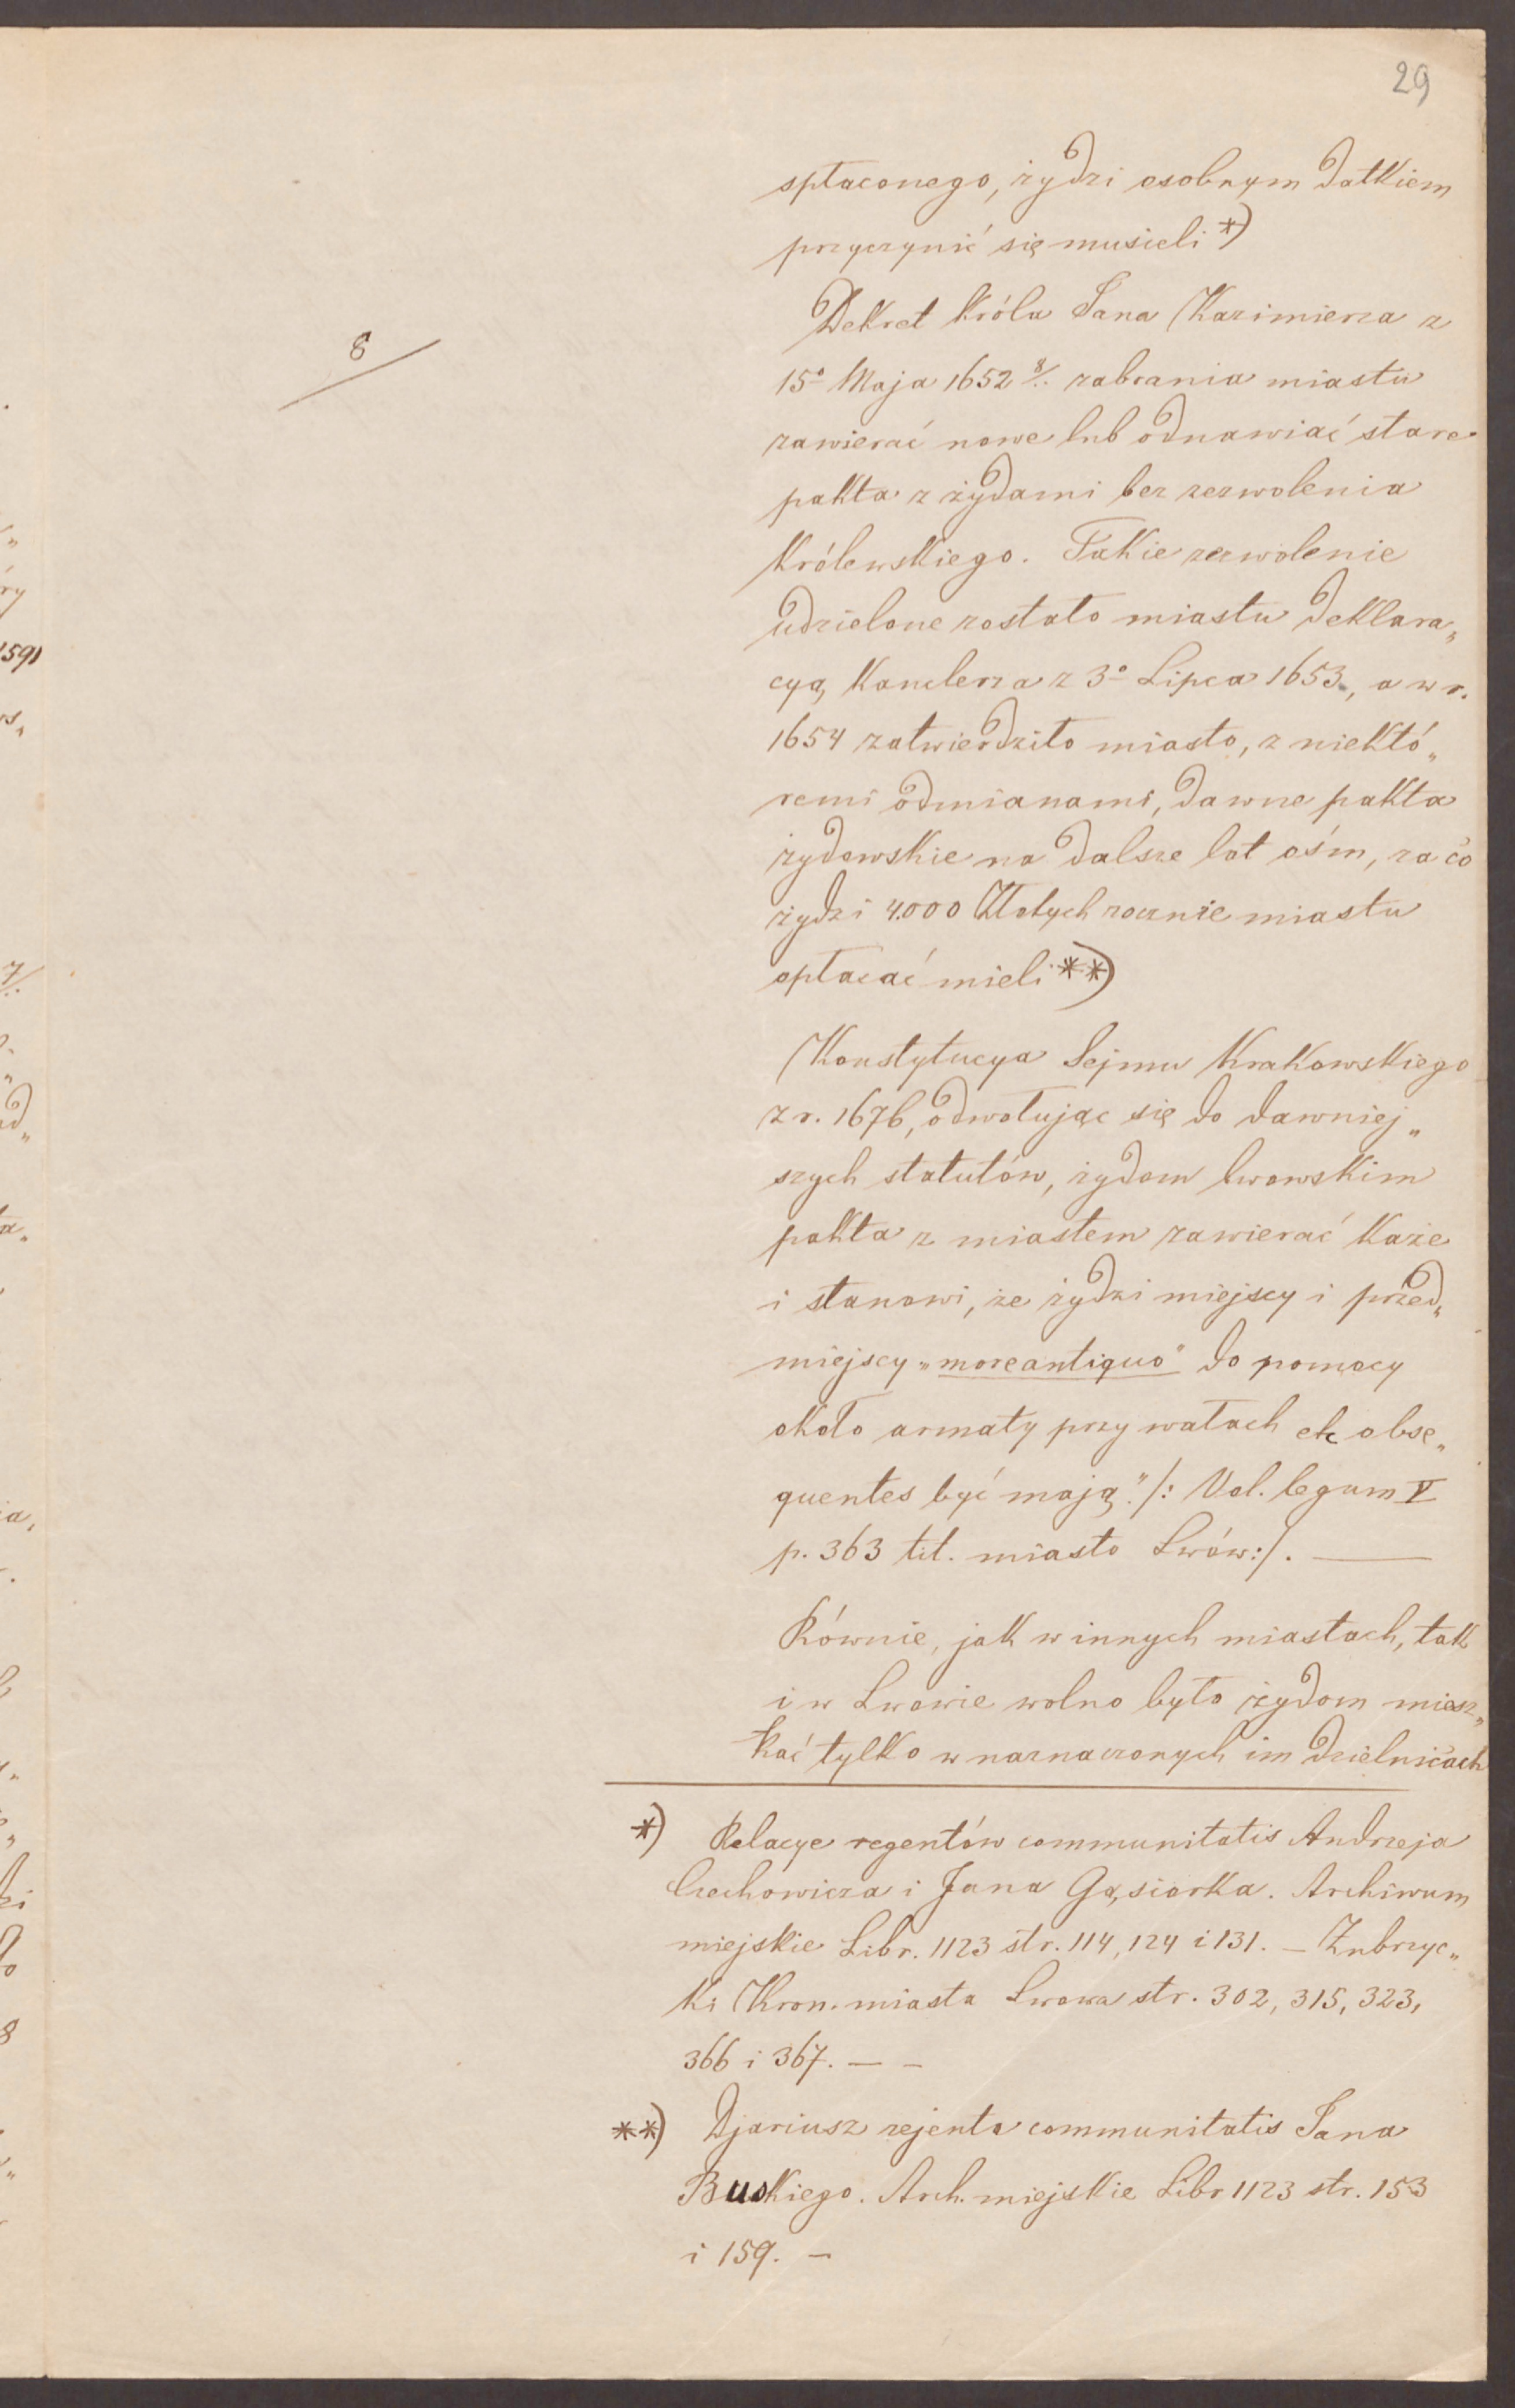 29
spłaconego, żydzi osobnym datkiem
przyczynić się musieli *)
8
Dekret króla Jana Kazimierza z
15º Maja 1652 8/. zabrania miastu
zawierać nowe lub odnawiać stare
pakta z żydami bez zezwolenia
Królewskiego. Takie zezwolenie
udzielone zostało miastu deklara„
cyą Kanclerza z 3º Lipca 1653., a w r.
1654 zatwierdziło miasto, z niektó„
remi odmianami, dawne pakta
żydowskie na dalsze lat ośm, za co
żydzi 4.000 Złotych rocznie miastu
opłacać mieli **)
Konstytucya Sejmu Krakowskiego
z r. 1676, odwołując się do dawniej„
szych statutów, żydom lwowskim
pakta z miastem zawierać każe
i stanowi, że żydzi miejscy i przed„
miejscy „more antiquo" do pomocy
około armaty przy wałach etc obse„
quentes być mają." /: Vol. legum V
p. 363 tit. miasto Lwów:/. —
Równie, jak w innych miastach, tak
i w Lwowie wolno było żydom miesz„
kać tylko w naznaczonych im dzielnicach
*) Relacye regentów communitatis Andrzeja
Czechowicza i Jana Gąsiorka. Archiwum
miejskie Libr. 1123 str. 114, 124 i 131. — Zubrzyc„
ki Kron. miasta Lwowa str. 302, 315, 323,
366 i 367. — —
**) Djariusz rejenta communitatis Jana
Buskiego. Arch. miejskie Libr 1123 str. 153
i 159. —